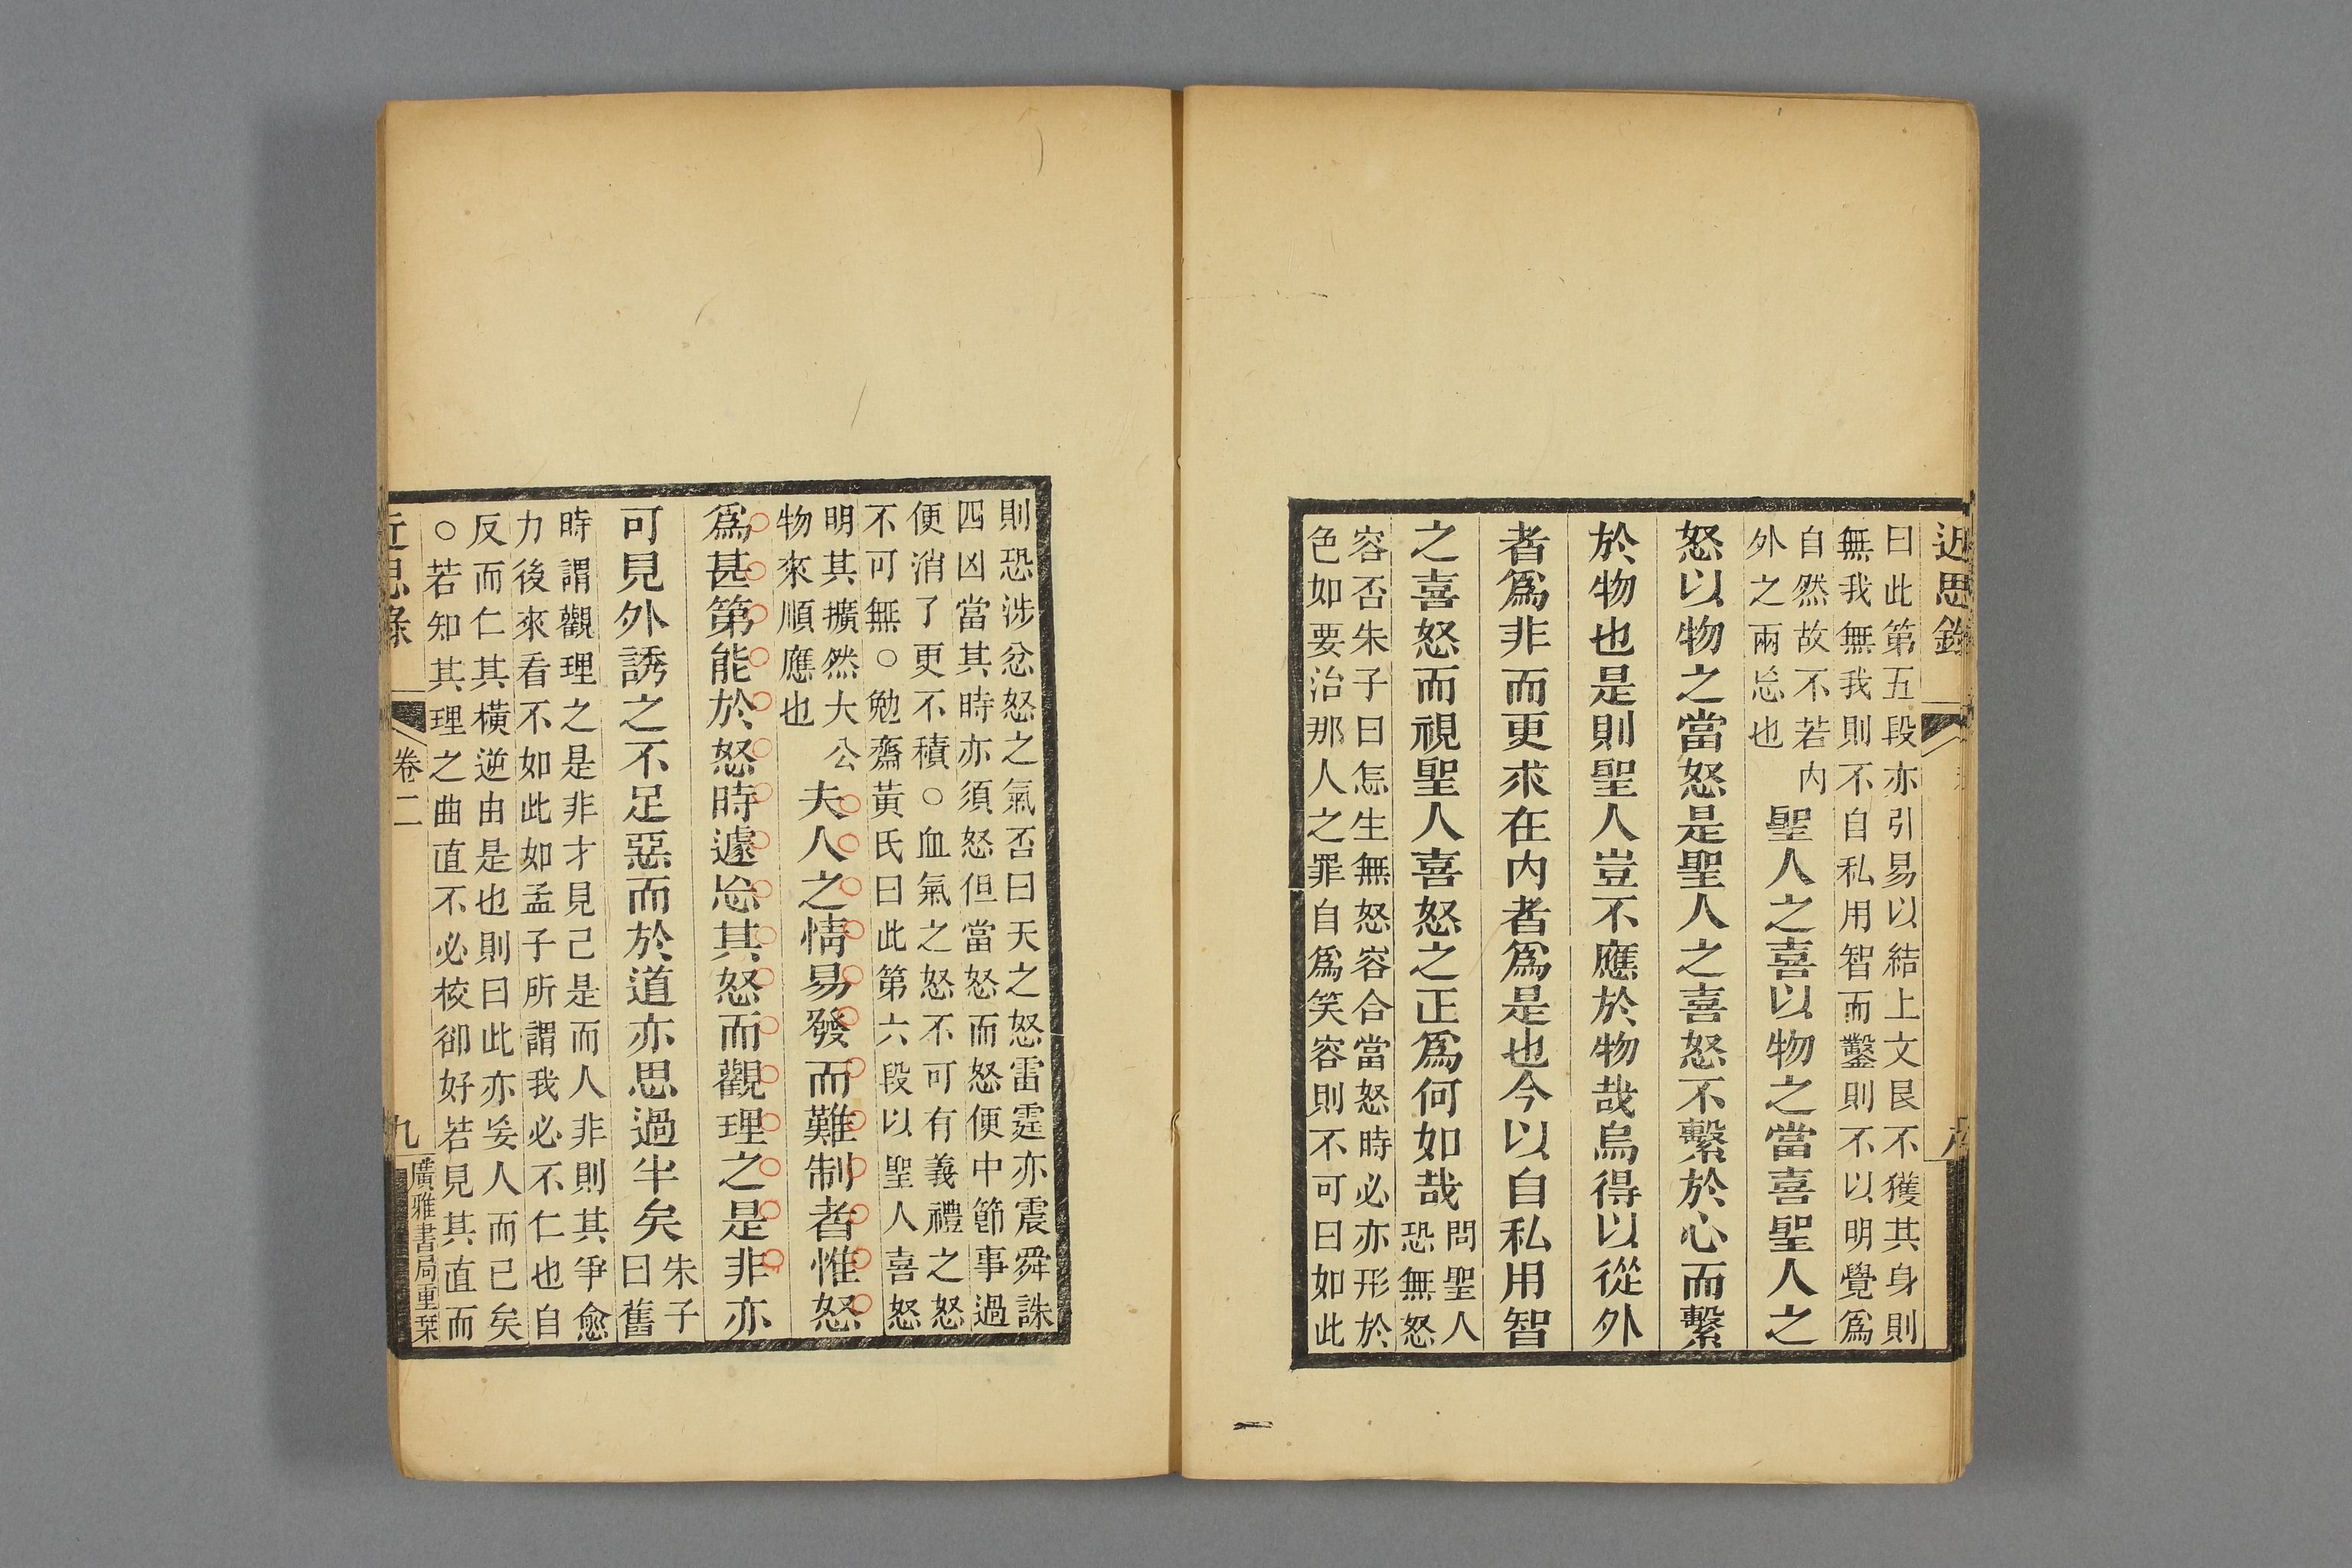 近思錄
曰此第五段亦引易以結上文艮不獲其身則
無我無我則不自私用智而鑿則不以明覺爲
自然故不若內
外之兩忘也
聖人之喜以物之當喜聖人之
怒以物之當怒是聖人之喜怒不繫於心而繫
於物也是則聖人豈不應於物哉烏得以從外
者爲非而更求在內者爲是也今以自私用智
之喜怒而視聖人喜怒之正爲何如哉
問聖人
恐無怒
容否朱子曰怎生無怒容合當怒時必亦形於
色如要治那人之罪自爲笑容則不可曰如此
則恐涉忿怒之氣否曰天之怒雷霆亦震舜誅
四凶當其時亦須怒但當怒而怒便中節事過
便消了更不積○血氣之怒不可有義禮之怒
不可無○勉齋黃氏曰此第六段以聖人喜怒
明其擴然大公
物來順應也
夫人之情易發而難制者惟怒
爲甚第能於怒時遽忘其怒而觀理之是非亦
可見外誘之不足惡而於道亦思過半矣
朱子
曰舊
時謂觀理之是非才見己是而人非則其爭愈
力後來看不如此如孟子所謂我必不仁也自
反而仁其橫逆由是也則曰此亦妄人而已矣
○若知其理之曲直不必校卻好若見其直而
近思錄
卷二
九
廣雅書局重栞